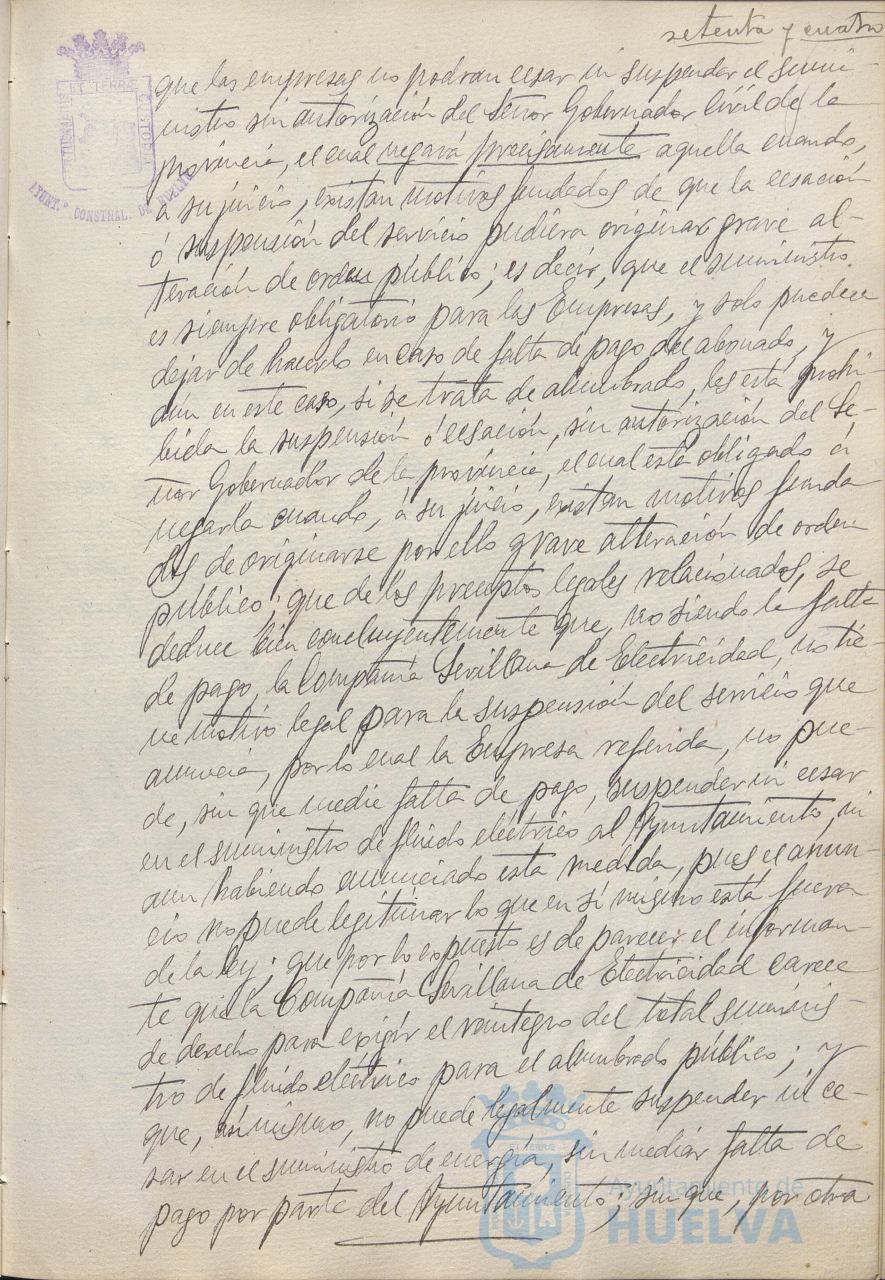 setenta y cuatro
que las empresas no podrán cesar ni suspender el sumi-
nistro sin autorización del Señor Gobernador Civil de la
provincia, el cual negará precisamente aquella cuando,
a su juicio, existan motivos fundados de que la cesación
ó suspensión del servicio pudiera originar grave al-
teración de orden público; es decir, que el suministro
es siempre obligatorio para las Empresas, y solo pueden
dejar de hacerlo en caso de falta de pago del abonado, y
aún en este caso, si se trata de alumbrado, les está prohi-
bida la suspensión ó cesación, sin autorización del Se-
ñor Gobernador de la provincia, el cual está obligado á
negarla cuando, á su juicio, existan motivos funda
dos de originarse por ello grave alteración de orden
público; que de los preceptos legales relacionados, se
deduce bien concluyentemente que, no siendo la falta
de pago, la Compañía Sevillana de Electricidad, no tie-
ne motivo legal para la suspensión del servicio que
anuncia, por lo cual la Empresa referida, no pue-
de, sin que medie falta de pago, suspender ni cesar
en el suministro de fluido eléctrico al Ayuntamiento, ni
aun habiendo anunciado esta medida, pues el anun-
cio no puede legitimar lo que en sí mismo está fuera
de la ley; que por lo expuesto es de parecer el informan-
te que la Compañía Sevillana de Electricidad carece
de derecho para exigir el reintegro del total suminis-
tro de fluido eléctrico para el alumbrado público; y
que, asimismo, no puede legalmente suspender ni ce-
sar en el suministro de energía, sin mediar falta de
pago por parte del Ayuntamiento; sin que, por otra
AYUNT.º CONSTNAL. DE HUELVA
Ayuntamiento de
HUELVA